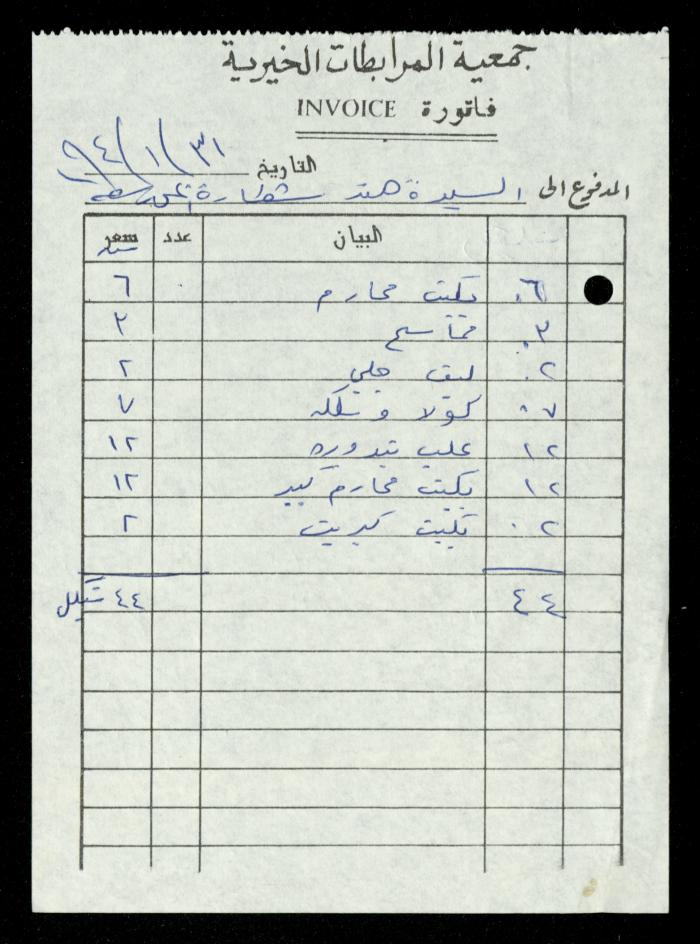 جمعية المرابطات الخيرية
فاتورة INVOICE
التاريخ ٣١/١/٩٤
المدفوع الى السيدة هند
البيان عدد سعر
٠٦ بكيت محارم ٦
٠٣ مماسح ٣
٠٢ ليف جلي ٢
٠٧ كولا و ٧
١٢ علب بندورة ١٢
١٢ بكيت محارم كبير ١٢
٠٢ بكيت كبريت ٢
٤٤ ٤٤ شيكل